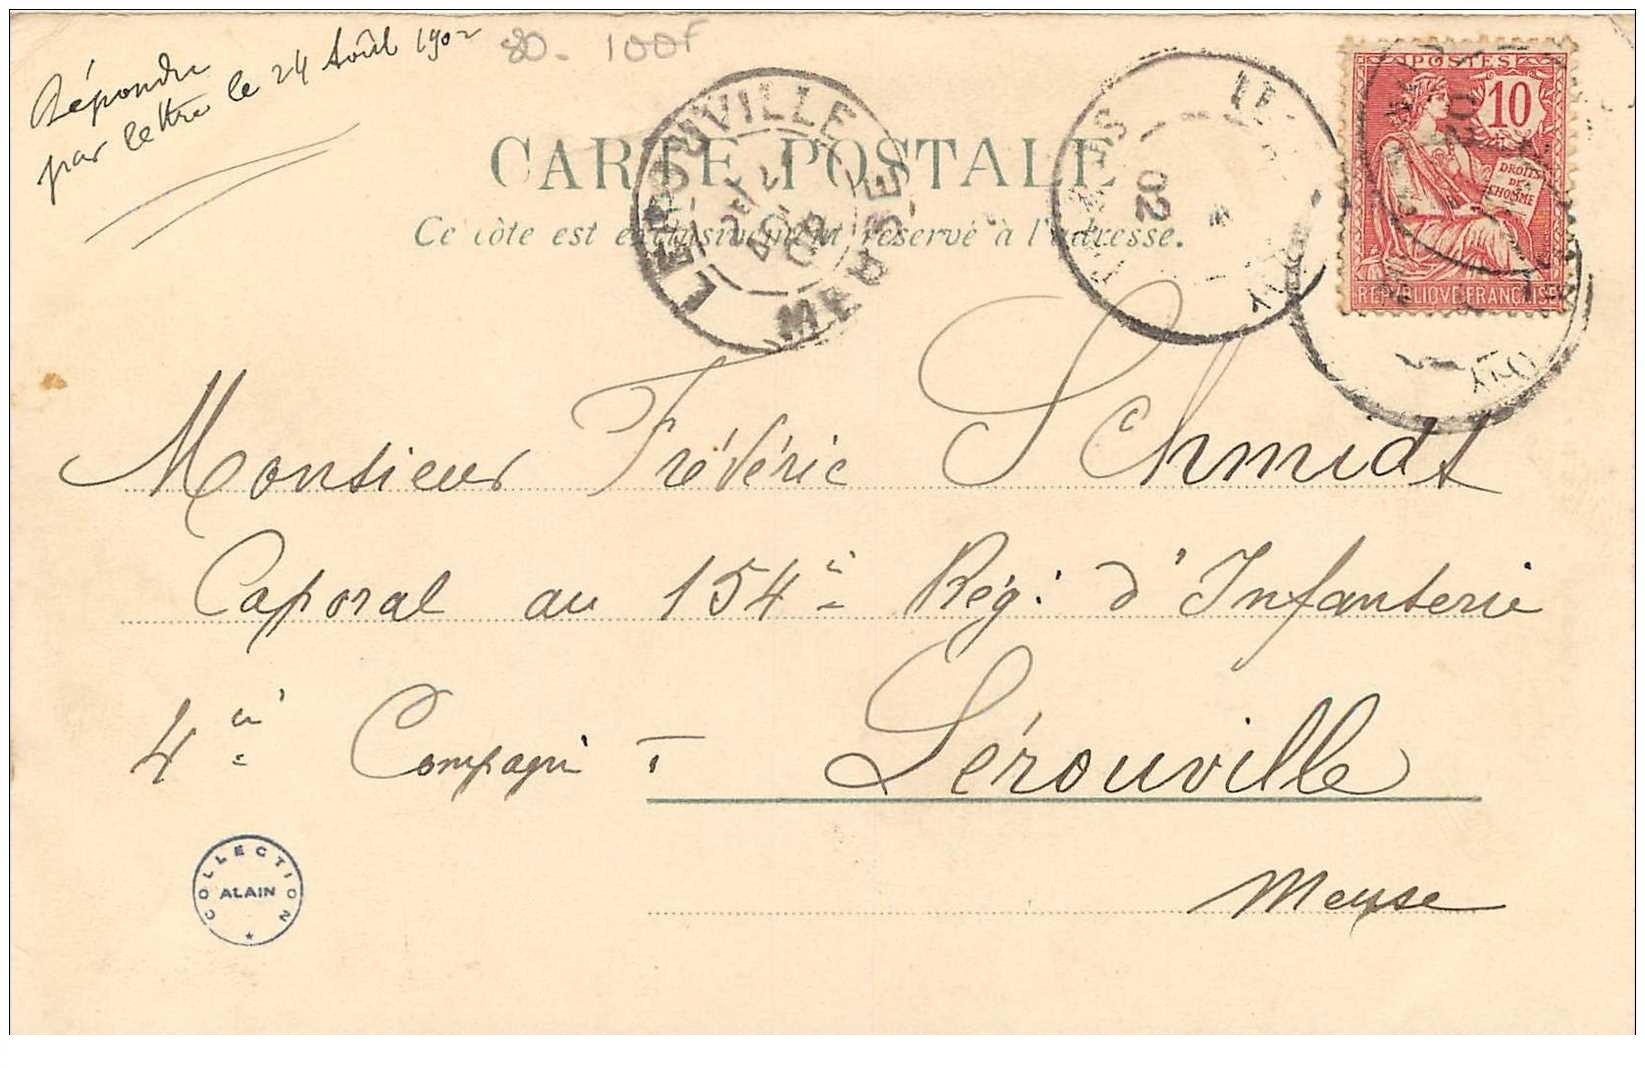 Répondu
par lettre le 24 Août 1902
80 - 100F
CARTE POSTALE
Ce côte est exclusivement réservé à l'adresse.
LEROUVILLE
MEUSE
02
POSTES
10
DROITS
DE
L'HOMME
REPUBLIQUE FRANÇAISE
Monsieur Frédéric Schmidt
Caporal au 154è Rég: d'Infanterie
4è Compagnie
Lérouville
Meuse
COLLECTION
ALAIN